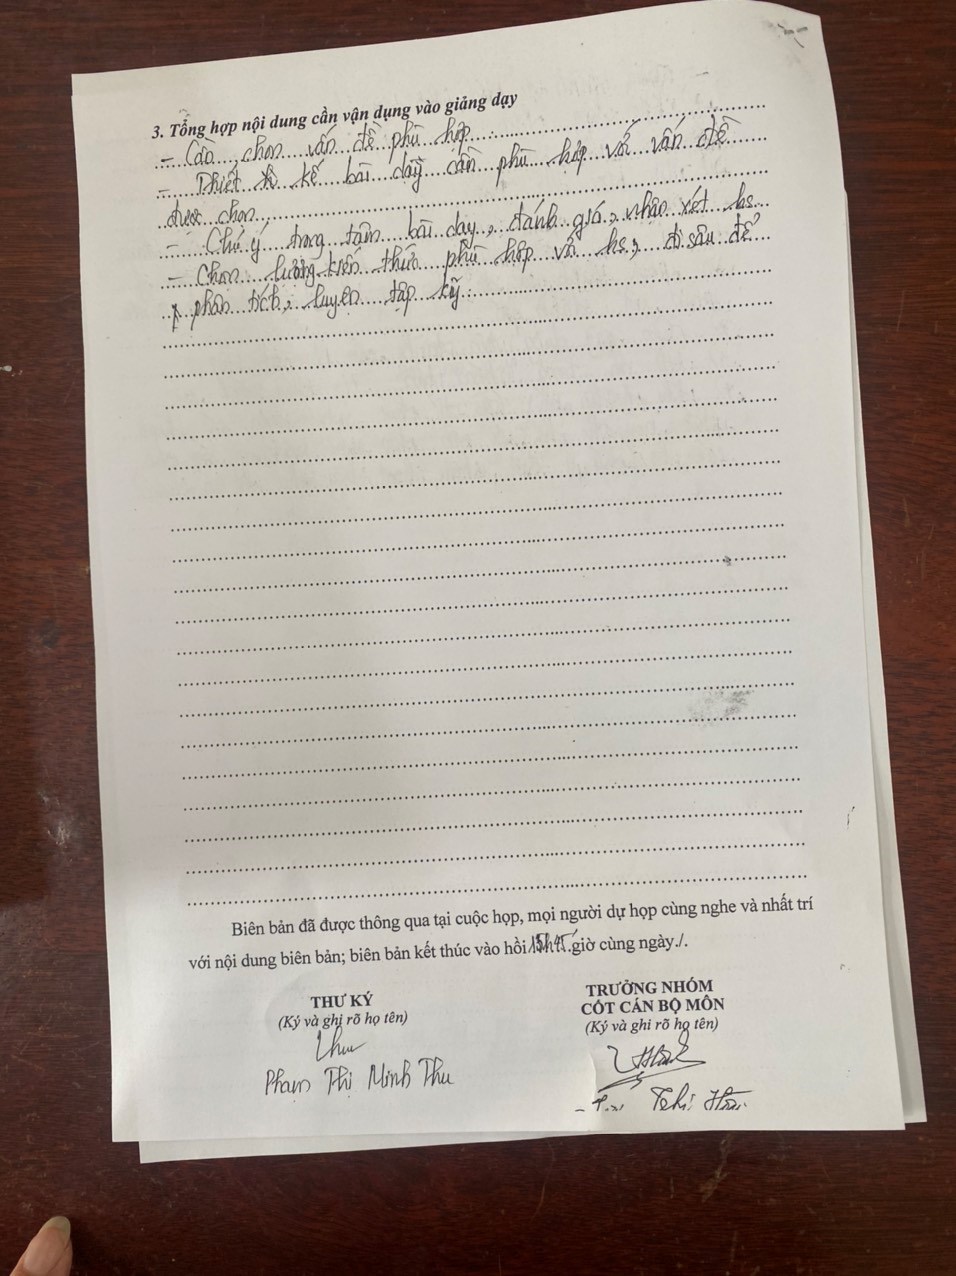 3. Tổng hợp nội dung cần vận dụng vào giảng dạy
- Cần chọn vấn đề phù hợp.
- Thiết kế bài dạy cần phù hợp với vấn đề
được chọn.
- Chú ý trọng tâm bài dạy, đánh giá, nhận xét hs.
- Chọn lượng kiến thức phù hợp với hs, đi sâu để
phân tích, luyện tập kỹ.
Biên bản đã được thông qua tại cuộc họp, mọi người dự họp cùng nghe và nhất trí
với nội dung biên bản; biên bản kết thúc vào hồi 15h45 giờ cùng ngày./.
THƯ KÝ
(Ký và ghi rõ họ tên)
Thu
Phạm Thị Minh Thu
TRƯỞNG NHÓM
CỐT CÁN BỘ MÔN
(Ký và ghi rõ họ tên)